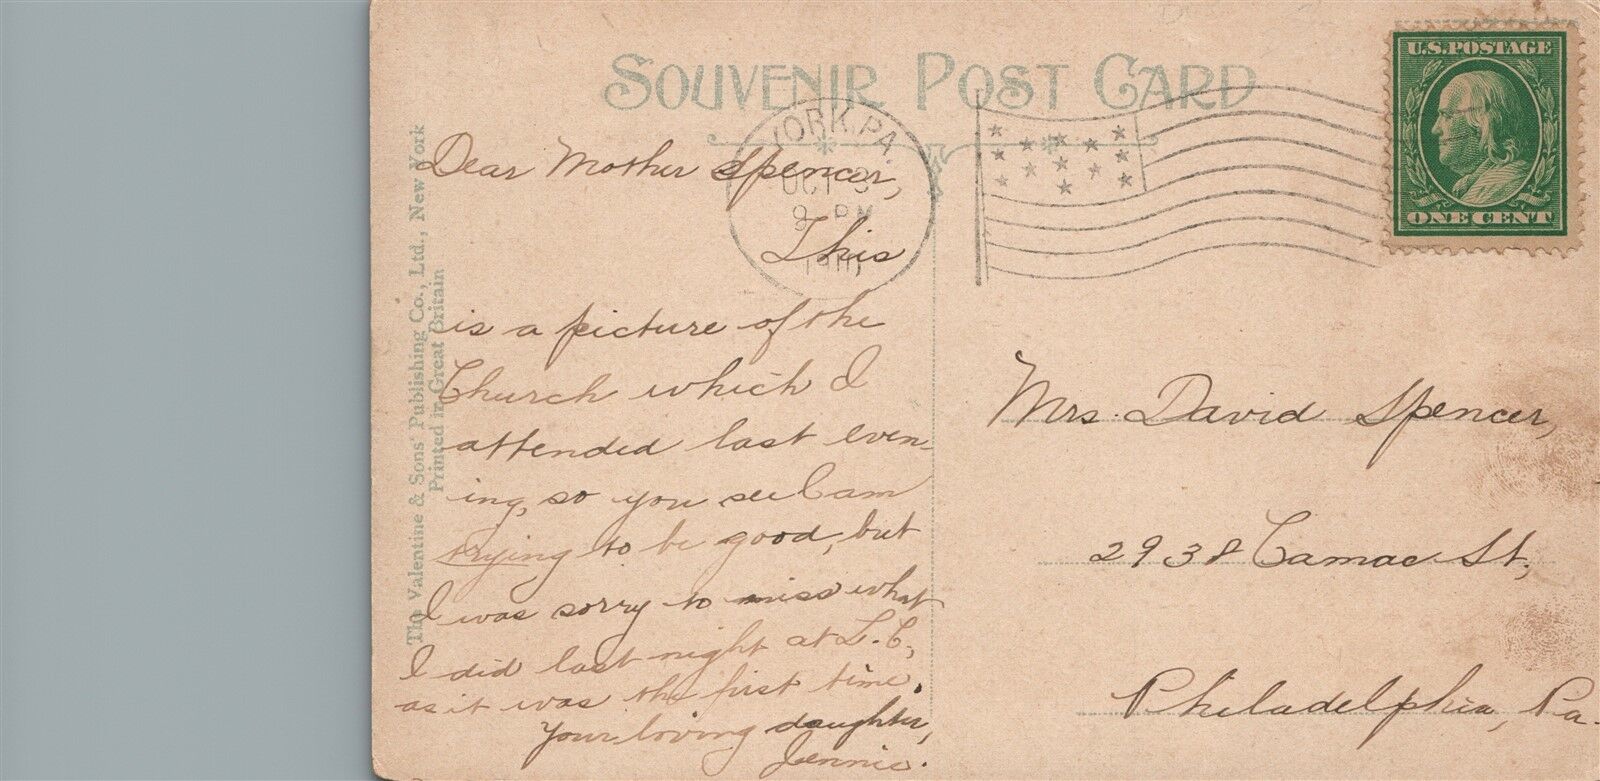 SOUVENIR POST CARD
U.S.POSTAGE
ONE CENT
YORK, PA.
OCT 3
9 PM
The Valentine & Sons' Publishing Co., Ltd., New York
Printed in Great Britain
Dear Mother Spencer,
This
is a picture of the
Church which I
attended last even-
ing, so you see I am
trying to be good, but
I was sorry to miss what
I did last night at L. C,
as it was the first time.
Your loving daughter,
Jennie.
Mrs. David Spencer,
2938 Camac St,
Philadelphia, Pa.